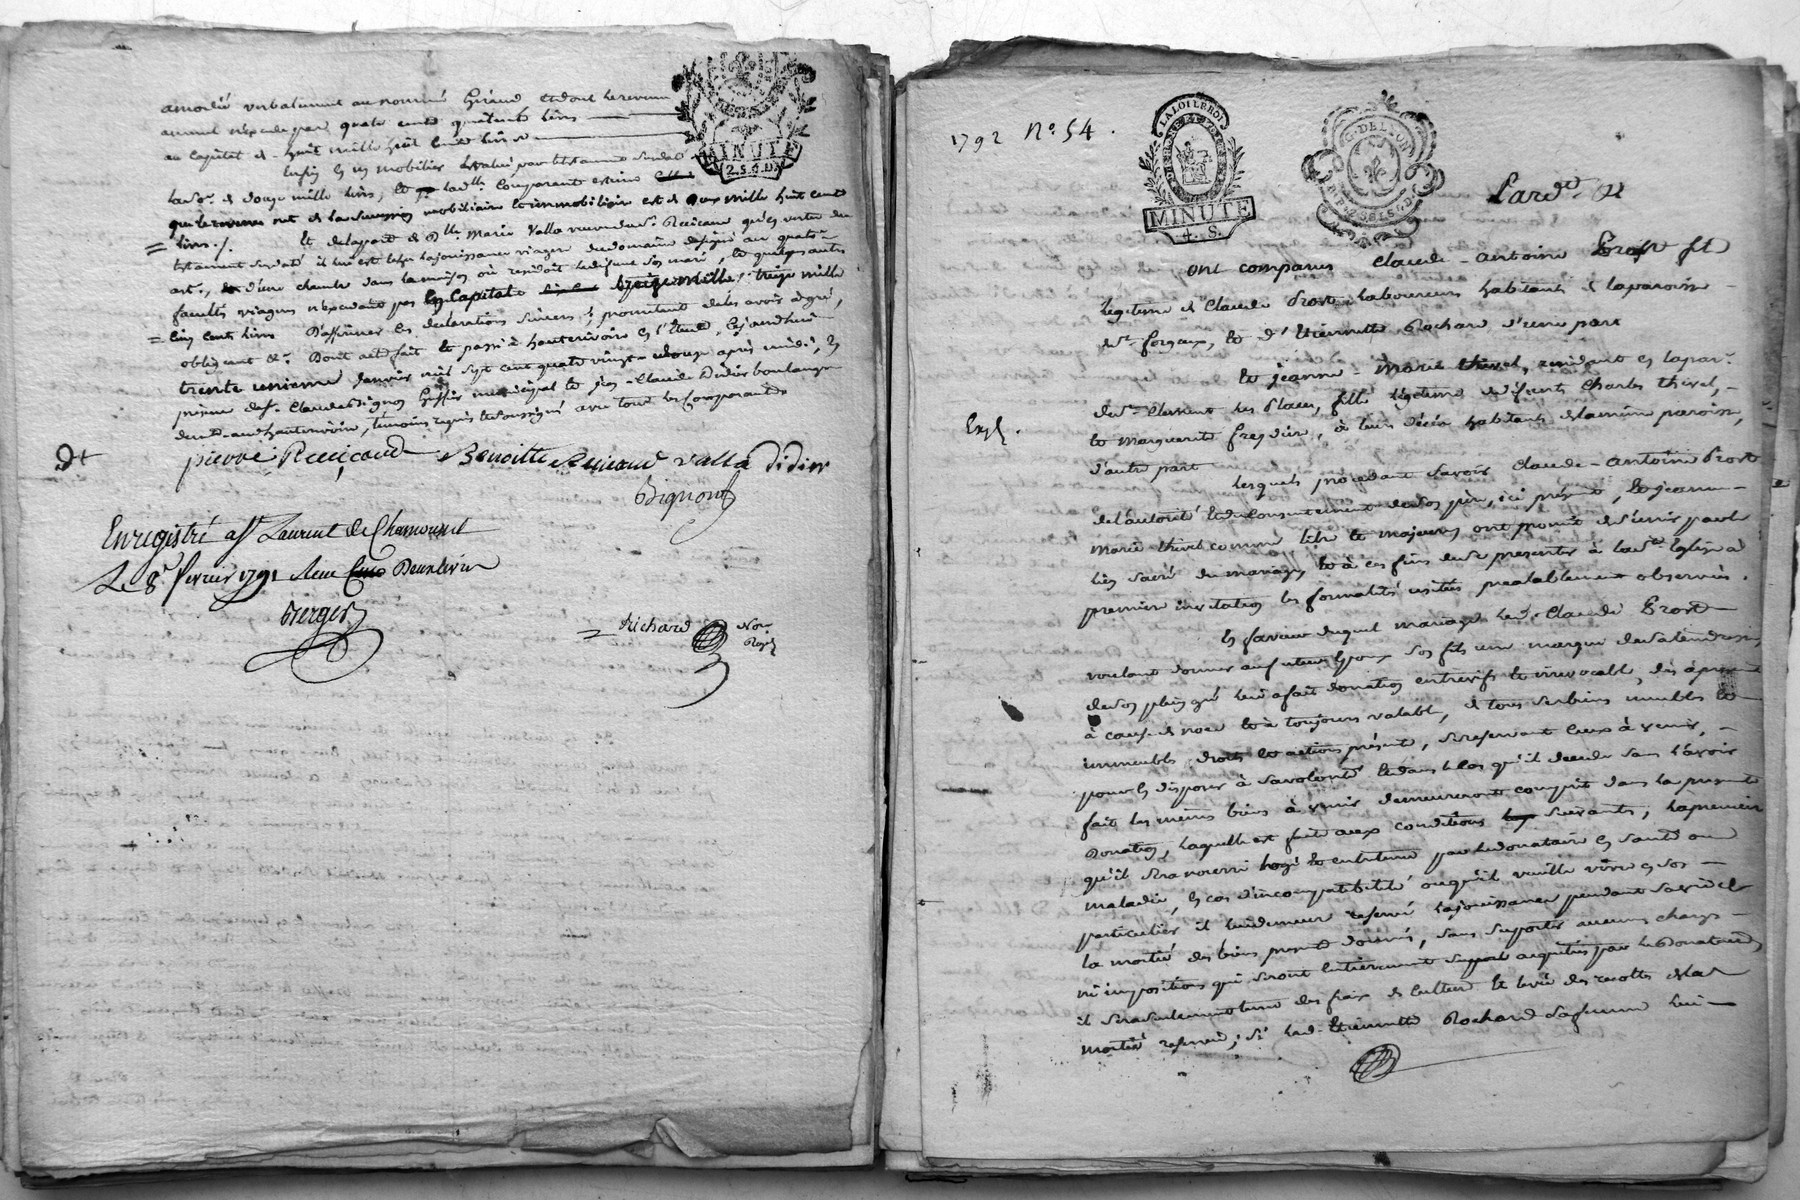 amodié verbalement au nommé Giraud et dont le revenu
annuel n'excede pas quatre cent quarante livres
au capital de huit mille huit cent livres
Enfin les mobilier évalué par testament susdaté
MINUTE
2.S.6.D.
la so. de douze mille livres, le comparant estime
qui lui revient de la succession mobiliaire et immobiliaire est de onze mille huit cent
livres ./. et de la part de dlle. Marie Valla veuve du sr. Recicaud qu'en vertu du
testament susdaté il lui est légué la jouissance viagere du domaine designé au quatre
art., d'une chambre dans la maison où residoit le defunt son mari, et quelques autres
facultés viageres n'excedant pas en capital treize mille
cinq cents livres
obligeant &c. Dont acte fait et passé à hauterivoire en l'étude, cejourdhui
trente unieme janvier mil sept cent quatre vingt onze après midi, en
présence de sr. Claude Bignon Greffier municipal et Jean-Claude Didier boulanger
dud. hauterivoire, témoins requis et soussignés avec tous les comparants
Dt
pierre Recicaud Benoitte Recicaud valla Didier
Bignon
Enregistré a St Laurent de Chamousset
Le 8e. fevrier 1791 Recu
Verger
Richard Not. Royal
1792 N°. 54.
LA LOI LE ROI
MINUTE
4. S.
G. DE LYON
Pardt.
ont comparus Claude-antoine Prost fils
legitime de Claude Prost laboureur habitant de la paroisse
de St. forgeux, et d'Etiennette Rochard d'une part
Et jeanne-marie thivel, resident en la par.
de St. Clement les Places, fille légitime de defunts Charles thivel,
et marguerite freydiere, à leur décès habitants de la même paroisse,
d'autre part
Expé.
Lesquels procedant savoir Claude-antoine Prost
de l'autorité et du consentement de son père, ici présent, et jeanne-
marie thivel comme libre et majeure ont promit de s'unir par le
lien sacré du mariage, et à ces fins de se presenter à la Ste. Eglise à
premiere invitation les formalités usitées prealablement observées.
En faveur duquel mariage led. Claude Prost
voulant donner au futur Epoux son fils une marque de sa tendresse,
de son plein gré lui a fait donation entrevifs et irrevocable, dès à present
à cause de noce et à toujours valable, de tous ses biens meubles et
immeubles, droits et actions présents, se reservant ceux à venir,
pour en disposer à sa volonté et dans le cas qu'il decede sans l'avoir
fait les mêmes biens à venir demeureront compris dans la presente
Donation, laquelle est faite aux conditions suivants, la premiere
qu'il sera nourri logé et entretenu par le donataire en santé ou
maladie, en cas d'incompatibilité ou qu'il veuille vivre en son
particulier il lui demeure reservé la jouissance pendant sa vie de
la moitié des biens presents donnés, sans supporter aucunes charges
ni impositions qui seront entièrement acquittées par le Donataire,
il sera seulement tenu des frais de culture et levée des recoltes de la
moitié reservée; si lad. Etiennette Rochard sa femme lui